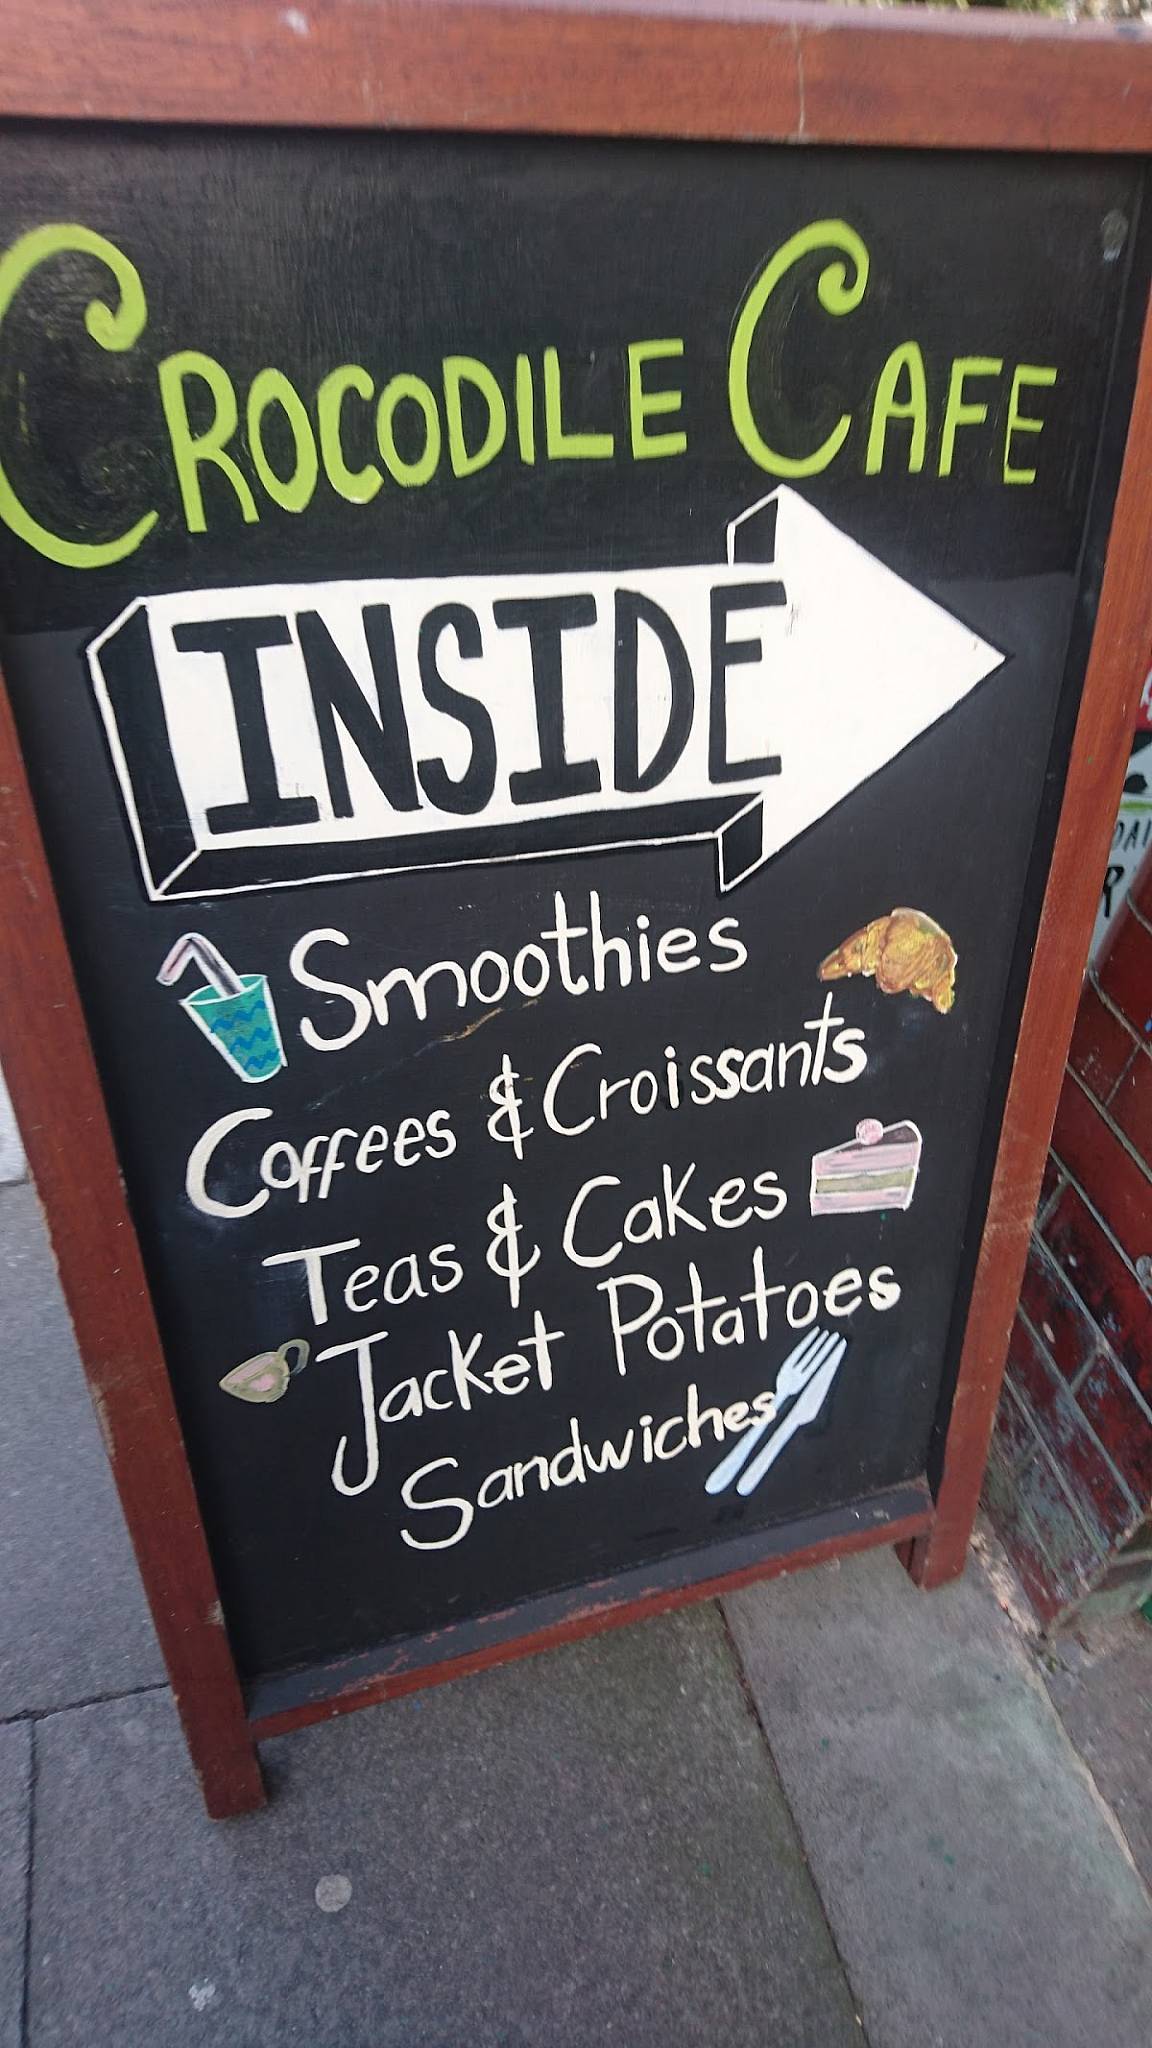 CROCODILE CAFE
INSIDE
Smoothies
Coffees & Croissants
Teas & Cakes
Jacket Potatoes
Sandwiches